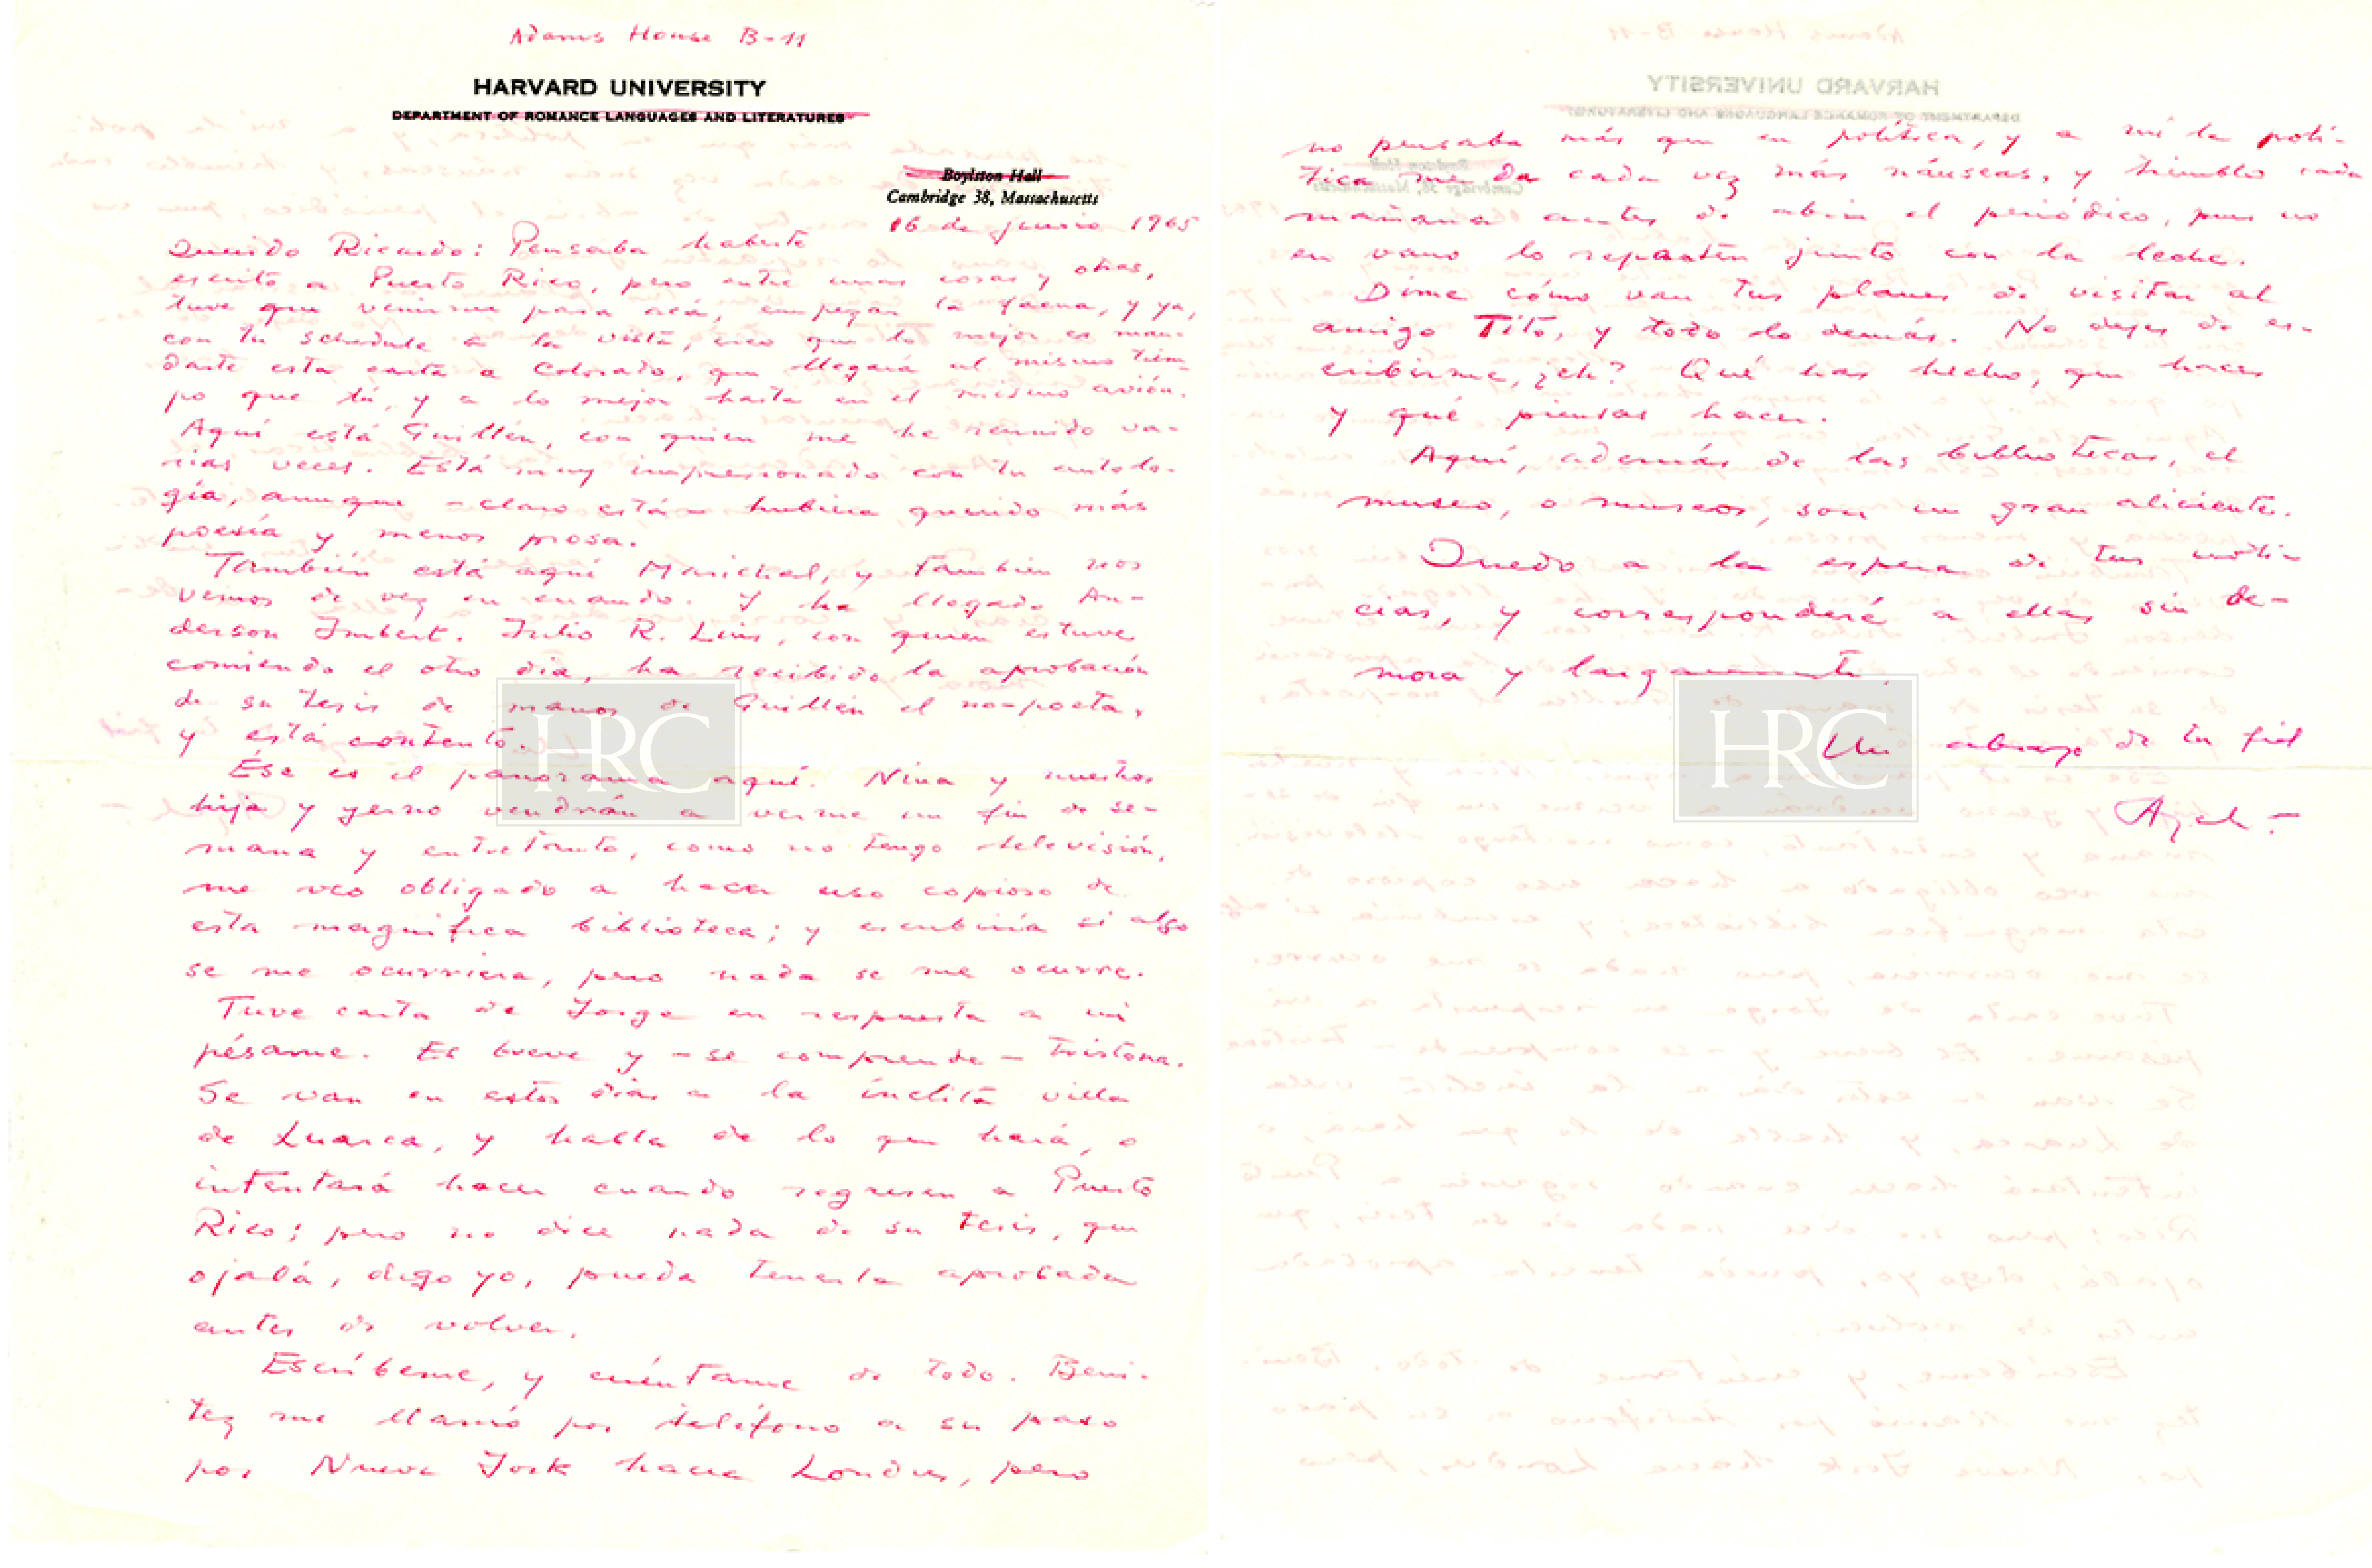 Adams House B-11
HARVARD UNIVERSITY
DEPARTMENT OF ROMANCE LANGUAGES AND LITERATURES
Boylston Hall
Cambridge 38, Massachusetts
16 de junio 1965
Querido Ricardo: Pensaba haberte
escrito a Puerto Rico, pero entre unas cosas y otras,
tuve que venirme para acá, empezar la faena, y ya,
con tu schedule a la vista, creo que lo mejor es man-
darte esta carta a Colorado, que llegará al mismo tiem
po que tú, y a lo mejor hasta en el mismo avión.
Aquí está Guillén, con quien me he reunido va-
rias veces. Está muy impresionado con tu antolo-
gía, aunque – claro está – hubiera querido más
poesía y menos prosa.
También está aquí Marichal, y también nos
vemos de vez en cuando. Y ha llegado An-
derson Imbert. Julio R. Luis, con quien estuve
comiendo el otro día, ha recibido la aprobación
de su tesis de manos de Guillén el no-poeta,
y está contento.
Ése es el panorama aquí. Nina y nuestros
hija y yerno vendrán a verme un fin de se-
mana y entretanto, como no tengo televisión,
me veo obligado a hacer uso copioso de
esta magnífica biblioteca; y escribiría si algo
se me ocurriera, pero nada se me ocurre.
Tuve carta de Jorge en respuesta a mi
pésame. Es breve y – se comprende – tristona.
Se van en estos días a la ínclita villa
de Luarca, y habla de lo que hará, o
intentará hacer cuando regresen a Puerto
Rico; pero no dice nada de su tesis, que
ojalá, digo yo, pueda tenerla aprobada
antes de volver.
Escríbeme, y cuéntame de todo. Bení-
tez me llamó por teléfono a su paso
por Nueva York hacia Londres, pero
no pensaba más que en política, y a mí la polí-
tica me da cada vez más náuseas, y tiemblo cada
mañana antes de abrir el periódico, pues no
en vano lo reparten junto con la leche.
Dime cómo van tus planes de visitar al
amigo Tito, y todo lo demás. No dejes de es-
cribirme, ¿eh? Qué has hecho, que haces
y qué piensas hacer.
Aquí, además de las bibliotecas, el
museo, o museos, son un gran aliciente.
Quedo a la espera de tus noti-
cias, y corresponderé a ellas sin de-
mora y largamente.
Un abrazo de tu fiel
Ayala –
HRC
HRC